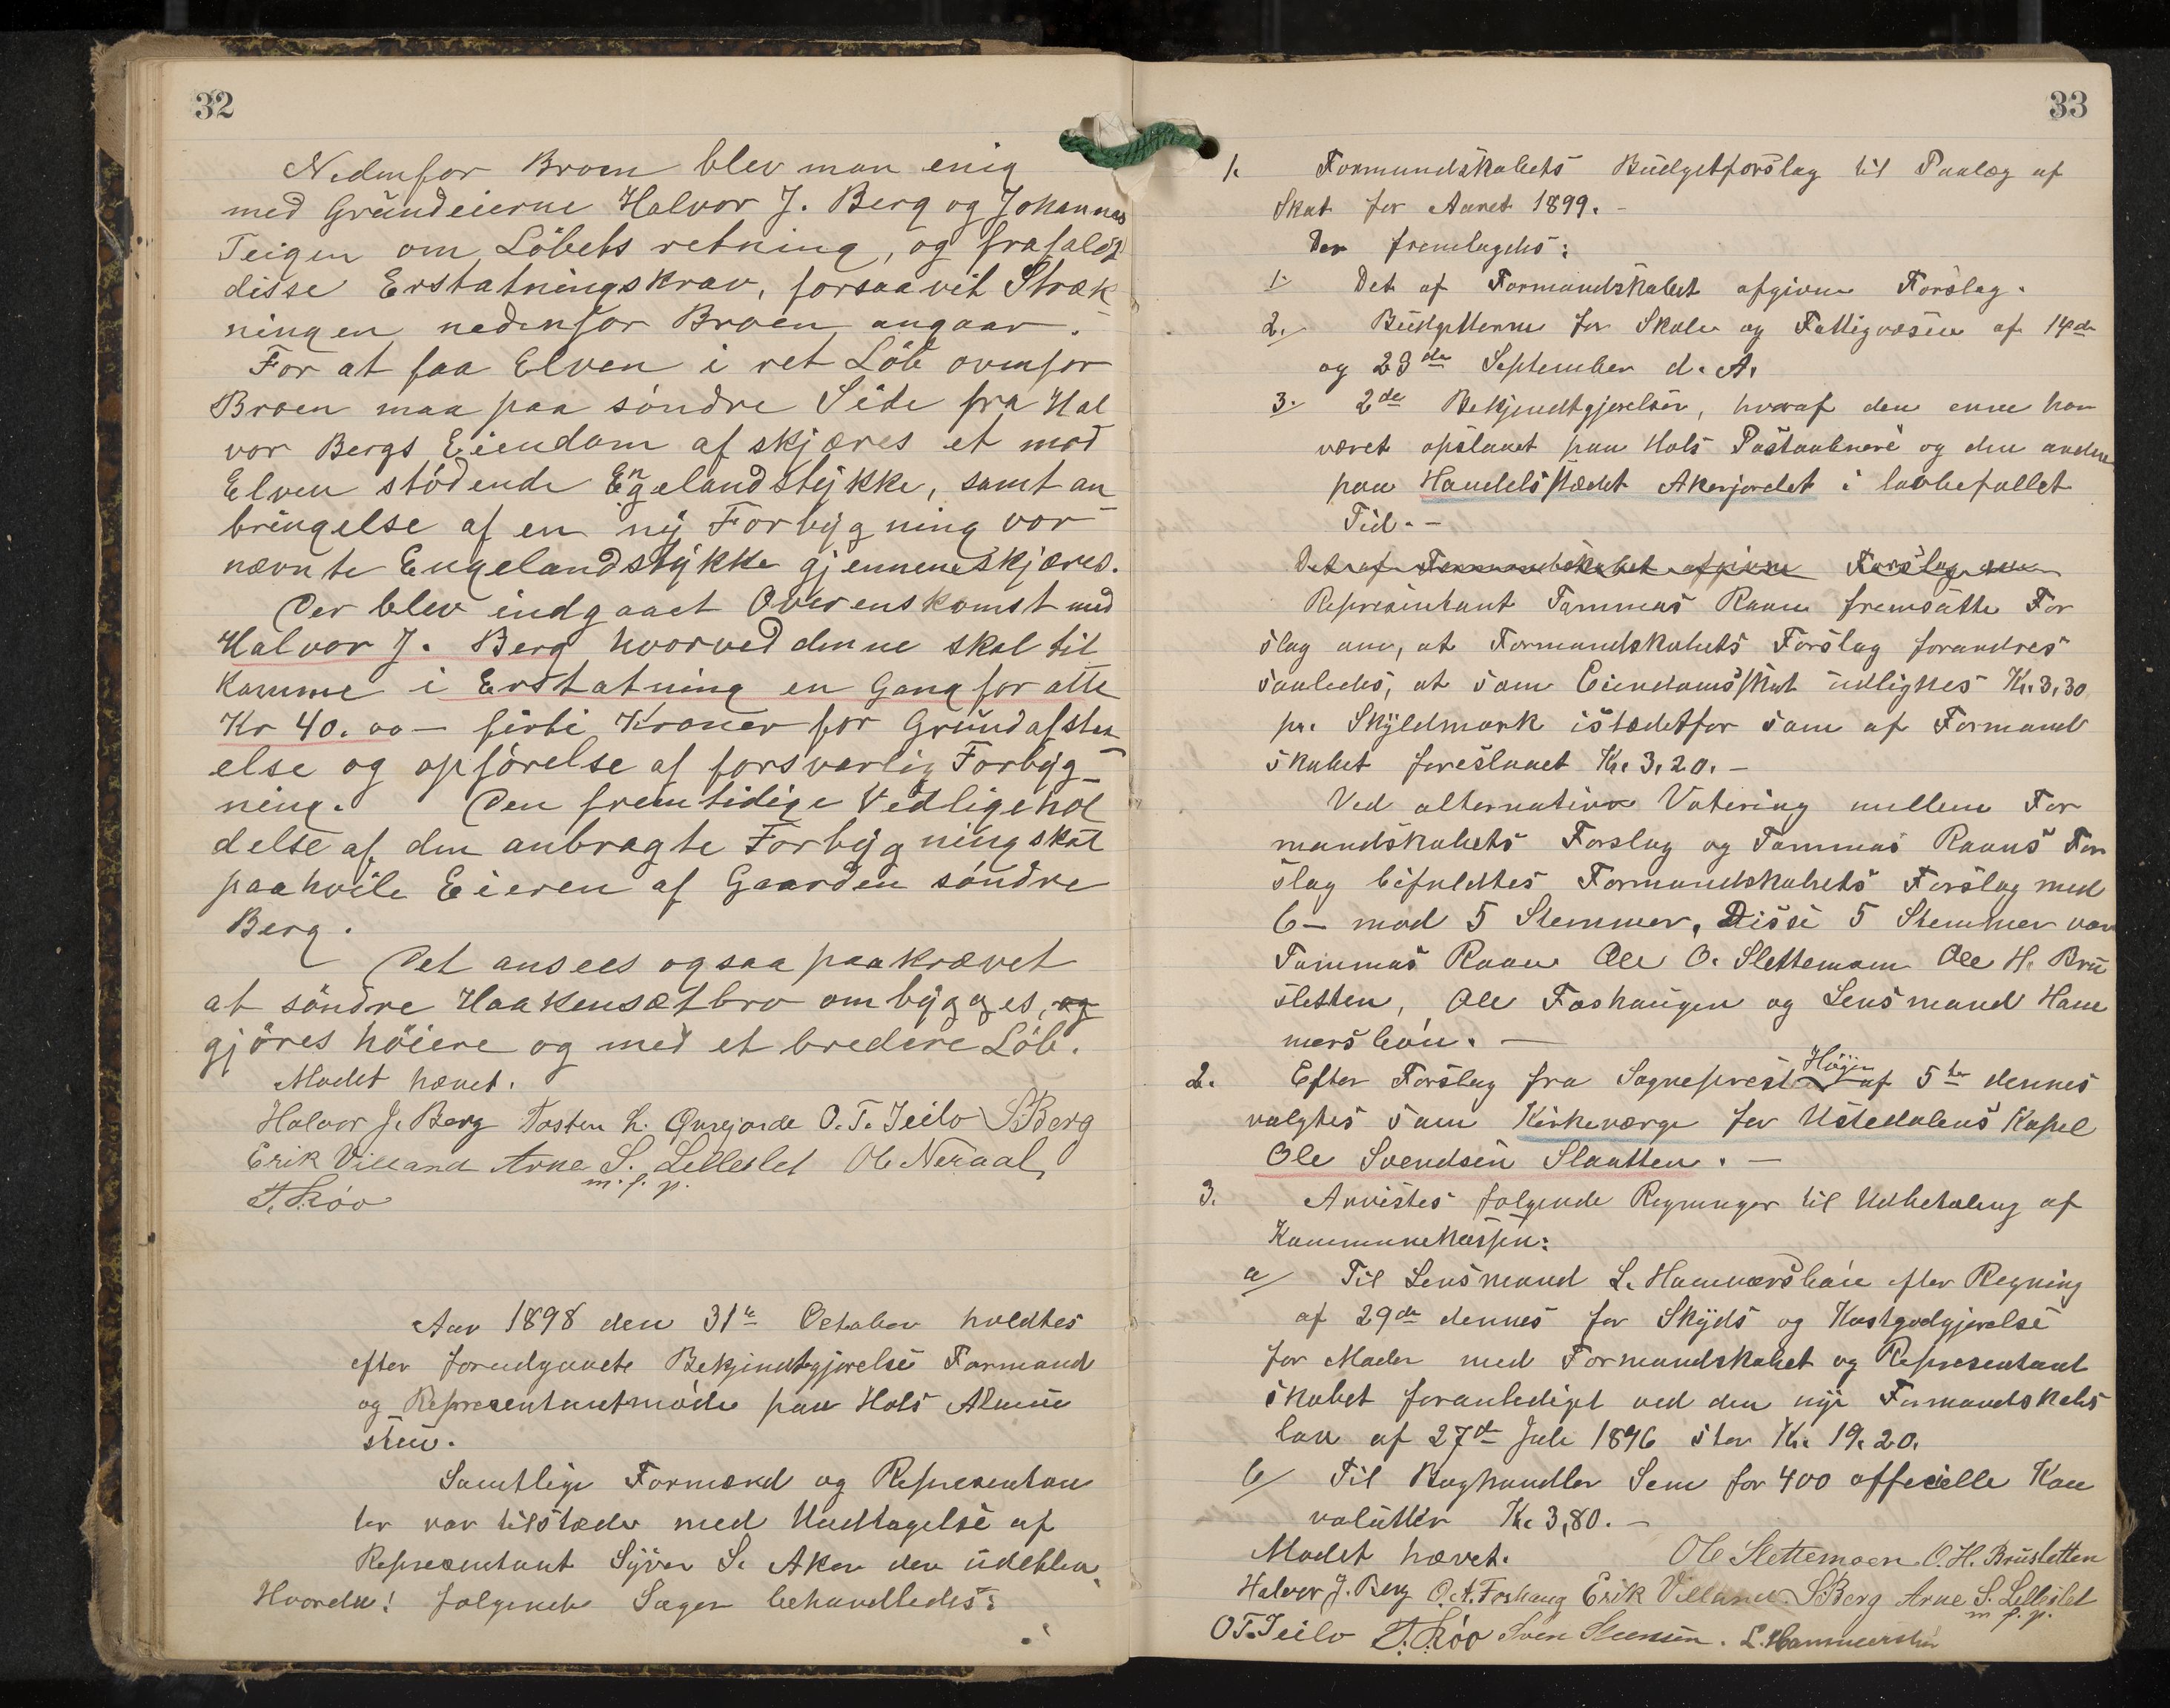 32
Nedenfor Broen blev man enig
med Grundeierne Halvor J. Berg og Johannes
Teigen om Löbets retning, og frafaldt
disse Erstatningskrav, forsaavit Stræk
ningen nedenfor Broen angaar.
For at faa Elven i ret Löb ovenfor
Broen maa paa söndre Side fra Hal
vor Bergs Eiendom afskjæres et mod
Elven stödende Engelandstykke, samt an
bringelse af en ny Forbygning vor
nævnte Engelandstykke gjennemskjæres.
Der blev indgaaet Overenskomst med
Halvor J. Berg hvorved denne skal til
komme i Erstatning en Gang for alle
Kr 40.00 – firti Kroner for Grundafsta
else og opförelse af forsvarlig Forbyg
ning. Den fremtidige Vedligehol
delse af den anbragte Forbygning skal
paahvile Eieren af Gaarden söndre
Berg.
Det ansees ogsaa paakrævet
at söndre Haakensætbro ombygges, og
gjöres höiere og med et bredere Löb.
Mödet hævet.
Halvor J. Berg Tosten L. Øvrejorde O. T. Teilo S. Berg
Erik Villand Arne S. Lilleslet Ole Neraal
m. f. p.
T. Skoo
Aar 1898 den 31te October holdtes
efter forudgaaete Bekjendtgjørelse Formand
og Representantmöde paa Hols Almue
stue.
Samtlige Formænd og Representan
ter var tilstæde med Undtagelse af
Representant Syver S. Aker der udeblev.
Hvorda! følgende Sager behandledes:
33
1. Formandskabets Budgetforslag til Paalæg af
Skat for Aaret 1899. –
Der fremlagdes:
1. Det af Formandskabet afgivne Forslag.
2. Budgetterne for Skole og Fattigvæsen af 14de
og 23de September d. A.
3. 2de Bekjendtgjørelser, hvoraf den enne har
været opslaaet paa Hols Postaabneri og den anden
paa Handelsstædet Akerjordet i lovbefallet
Tid. –
Det af Formandskabet afgivne Forslag
Representant Tommas Raaen fremsatte For
slag om, at Formandskabets Forslag forandres
saaledes, at som Eiendomsskat udlignes Kr. 3,30
pr. Skyldmark istædetfor som af Formand
skabet foreslaaet Kr. 3,20. –
Ved alternativ Votering mellem For
mandskabets Forslag og Tommas Raaens For
slag bifaldtes Formandskabets Forslag med
6 – mod 5 Stemmer. Disse 5 Stemmer var
Tommas Raaen Ole O. Slettemoen Ole H. Bru
sletten, Ole Foshaugen og Lensmand Ham
mersbøen. –
2. Efter Forslag fra Sogneprest Høyer af 5te dennes
valgtes som Kirkeværge for Ustedalens Kapel
Ole Svendsen Slaatten. –
3. Anvistes følgende Regninger til Udbetaling af
Kommunekassen:
a/ Til Lensmand L. Hammersbøen efter Regning
af 29de dennes for Skyds og Kostgodgjørelse
for Møder med Formandskabet og Representant
skabet foranlediget ved den nye Formandskabs
lov af 27de Juli 1896 stor Kr. 19.20.
b/ Til Boghandler Sem for 400 officielle Kon
volutter Kr. 3,80. –
Mødet hævet. Ole Slettemoen. O. H. Brusletten
Halvor J. Berg O. A. Foshaug Erik Villand. S. Berg Arne S. Lilleslet
m f. p.
O T. Teilo T. Skoo Sven Steensen. L. Hammersbøn